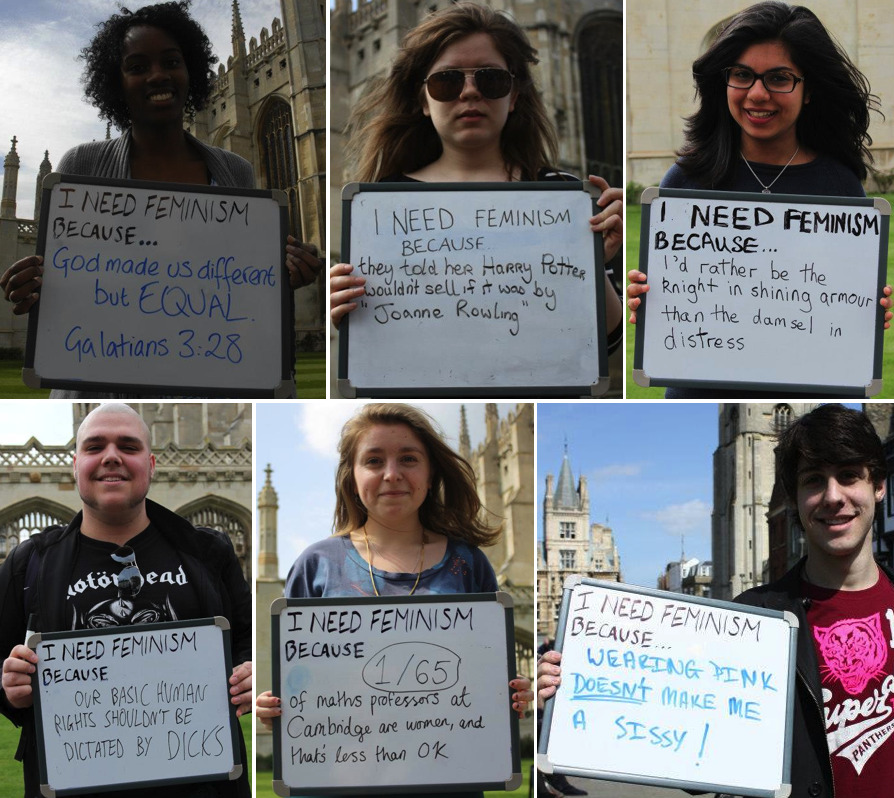 I NEED FEMINISM
BECAUSE...
God made us different
but EQUAL.
Galatians 3:28
I NEED FEMINISM
BECAUSE...
they told her Harry Potter
wouldn't sell if it was by
"Joanne Rowling"
I NEED FEMINISM
BECAUSE...
I'd rather be the
knight in shining armour
than the damsel in
distress
motörhead
I NEED FEMINISM
BECAUSE
OUR BASIC HUMAN
RIGHTS SHOULDN'T BE
DICTATED BY DICKS
I NEED FEMINISM
BECAUSE 1/65
of maths professors at
Cambridge are women, and
that's less than OK
I NEED FEMINISM
BECAUSE...
WEARING PINK
DOESN'T MAKE ME
A SISSY!
Super
PANTHERS